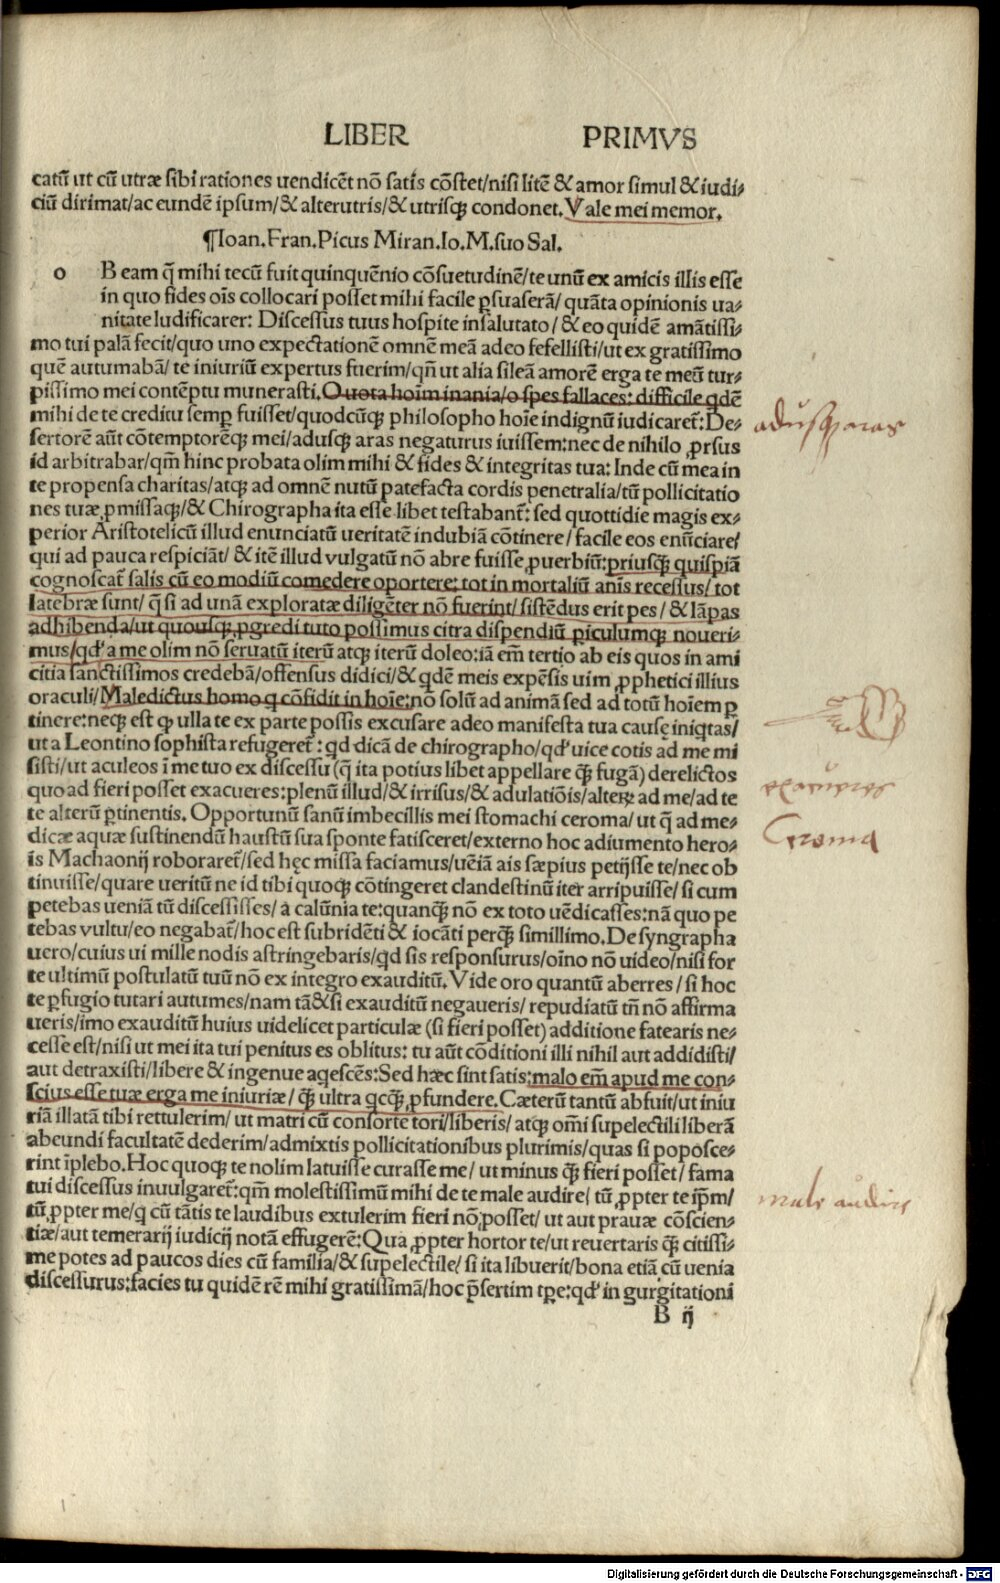 LIBER PRIMVS
catū ut cū utræ sibi rationes uendicēt nō satis cōstet/nisi litē & amor simul & iudi⸗
ciū dirimat/ac eundē ipsum/& alterutris/& utrisqȝ condonet. Vale mei memor.
¶Ioan.Fran.Picus Miran.Io.M.suo Sal.
o B eam q̄ mihi tecū fuit quinquēnio cōsuetudinē/te unū ex amicis illis esse
in quo fides oīs collocari posset mihi facile ꝑsuaserā/quāta opinionis ua⸗
nitate ludificarer: Discessus tuus hospite insalutato/& eo quidē amātissi⸗
mo tui palā fecit/quo uno expectationē omnē meā adeo fefellisti/ut ex gratissimo
quē autumabā/te iniuriū expertus fuerim/qñ ut alia sileā amorē erga te meū tur⸗
pissimo mei contēptu munerasti. Quota hoīm inania/o spes fallaces: difficile qdē
mihi de te creditu semꝑ fuisset/quodcūqȝ philosopho hoīe indignū iudicaret̄: De⸗
sertorē aūt cōtemptorēqȝ mei/adusqȝ aras negaturus iuissem: nec de nihilo ꝓrsus
id arbitrabar/qm̄ hinc probata olim mihi & fides & integritas tua: Inde cū mea in
te propensa charitas/atqȝ ad omnē nutū patefacta cordis penetralia/tū pollicitatio
nes tuæ ꝓmissaqȝ/& Chirographa ita esse libet testabant̄: sed quottidie magis ex⸗
perior Aristotelicū illud enunciatū ueritatē indubiā cōtinere/facile eos enūciare/
qui ad pauca respiciāt/& itē illud vulgatū nō abre fuisse ꝓuerbiū: priusqȝ quispiā
cognoscat̄ salis cū eo modiū comedere oportere: tot in mortaliū anīs recessus/tot
latebræ sunt/q̄ si ad unā exploratæ diligēter nō fuerint/sistēdus erit pes/& lāpas
adhibenda/ut quousqȝ ꝓgredi tuto possimus citra dispendiū ꝑiculumqȝ noueri⸗
mus/qđ a me olim nō seruatū iterū atqȝ iterū doleo: iā em̄ tertio ab eis quos in ami
citia sanctissimos credebā/offensus didici/& qdē meis expēsis uim ꝓphetici illius
oraculi/Maledictus homo q cōfidit in hoīe: nō solū ad animā sed ad totū hoīem ꝑ
tinere: neqȝ est qꝙ ulla te ex parte possis excusare adeo manifesta tua causę iniqtas/
ut a Leontino sophista refugeret̄: qd dicā de chirographo/qđ uice cotis ad me mi
sisti/ut aculeos ī me tuo ex discessu (q̄ ita potius libet appellare qȝ̄ fugā) derelictos
quo ad fieri posset exacueres: plenū illud/& irrisus/& adulatiōis/alteꝝ ad me/ad te
te alterū ꝑtinentis. Opportunū sanū imbecillis mei stomachi ceroma/ut q̄ ad me⸗
dicæ aquæ sustinendū haustū sua sponte fatisceret/externo hoc adiumento hero⸗
is Machaonij roboraret̄/sed hęc missa faciamus/uēiā ais sæpius petijsse te/nec ob
tinuisse/quare ueritū ne id tibi quoqȝ cōtingeret clandestinū iter arripuisse/si cum
petebas ueniā tū discessisses/a calūnia te: quanqȝ̄ nō ex toto uēdicasses: nā quo pe
tebas vultu/eo negabat̄/hoc est subridēti & iocāti perqȝ̄ simillimo. De syngrapha
uero/cuius ui mille nodis astringebaris/qd sis responsurus/oīno nō uideo/nisi for
te ultimū postulatū tuū nō ex integro exauditū. Vide oro quantū aberres/si hoc
te ꝑfugio tutari autumes/nam tā&si exauditū negaueris/repudiatū tñ nō affirma
ueris/imo exauditū huius uidelicet particulæ (si fieri posset) additione fatearis ne⸗
cesse est/nisi ut mei ita tui penitus es oblitus: tu aūt cōditioni illi nihil aut addidisti/
aut detraxisti/libere & ingenue aqescēs: Sed hæc sint satis: malo em̄ apud me con⸗
scius esse tuæ erga me iniuriæ/qȝ̄ ultra qcqȝ̄ ꝓfundere. Cæterū tantū abfuit/ut iniu
riā illatā tibi rettulerim/ut matri cū consorte tori/liberis/atqȝ om̄i supelectili liberā
abeundi facultatē dederim/admixtis pollicitationibus plurimis/quas si poposce⸗
rint īplebo. Hoc quoqȝ te nolim latuisse curasse me/ut minus qȝ̄ fieri posset/fama
tui discessus inuulgaret̄: qm̄ molestissimū mihi de te male audire/tū ꝓpter te ip̄m/
tū ꝓpter me/q cū tātis te laudibus extulerim fieri nō posset/ut aut prauæ cōscien⸗
tiæ/aut temerarij iudicij notā effugerē: Qua ꝓpter hortor te/ut reuertaris qȝ̄ citissi⸗
me potes ad paucos dies cū familia/& supelectile/si ita libuerit/bona etiā cū uenia
discessurus: facies tu quidē rē mihi gratissimā/hoc p̄sertim tꝑe: qđ in gurgitationi
B ij
adusqȝ aras
exacueres
Ceroma
male audire
Digitalisierung gefördert durch die Deutsche Forschungsgemeinschaft - DFG